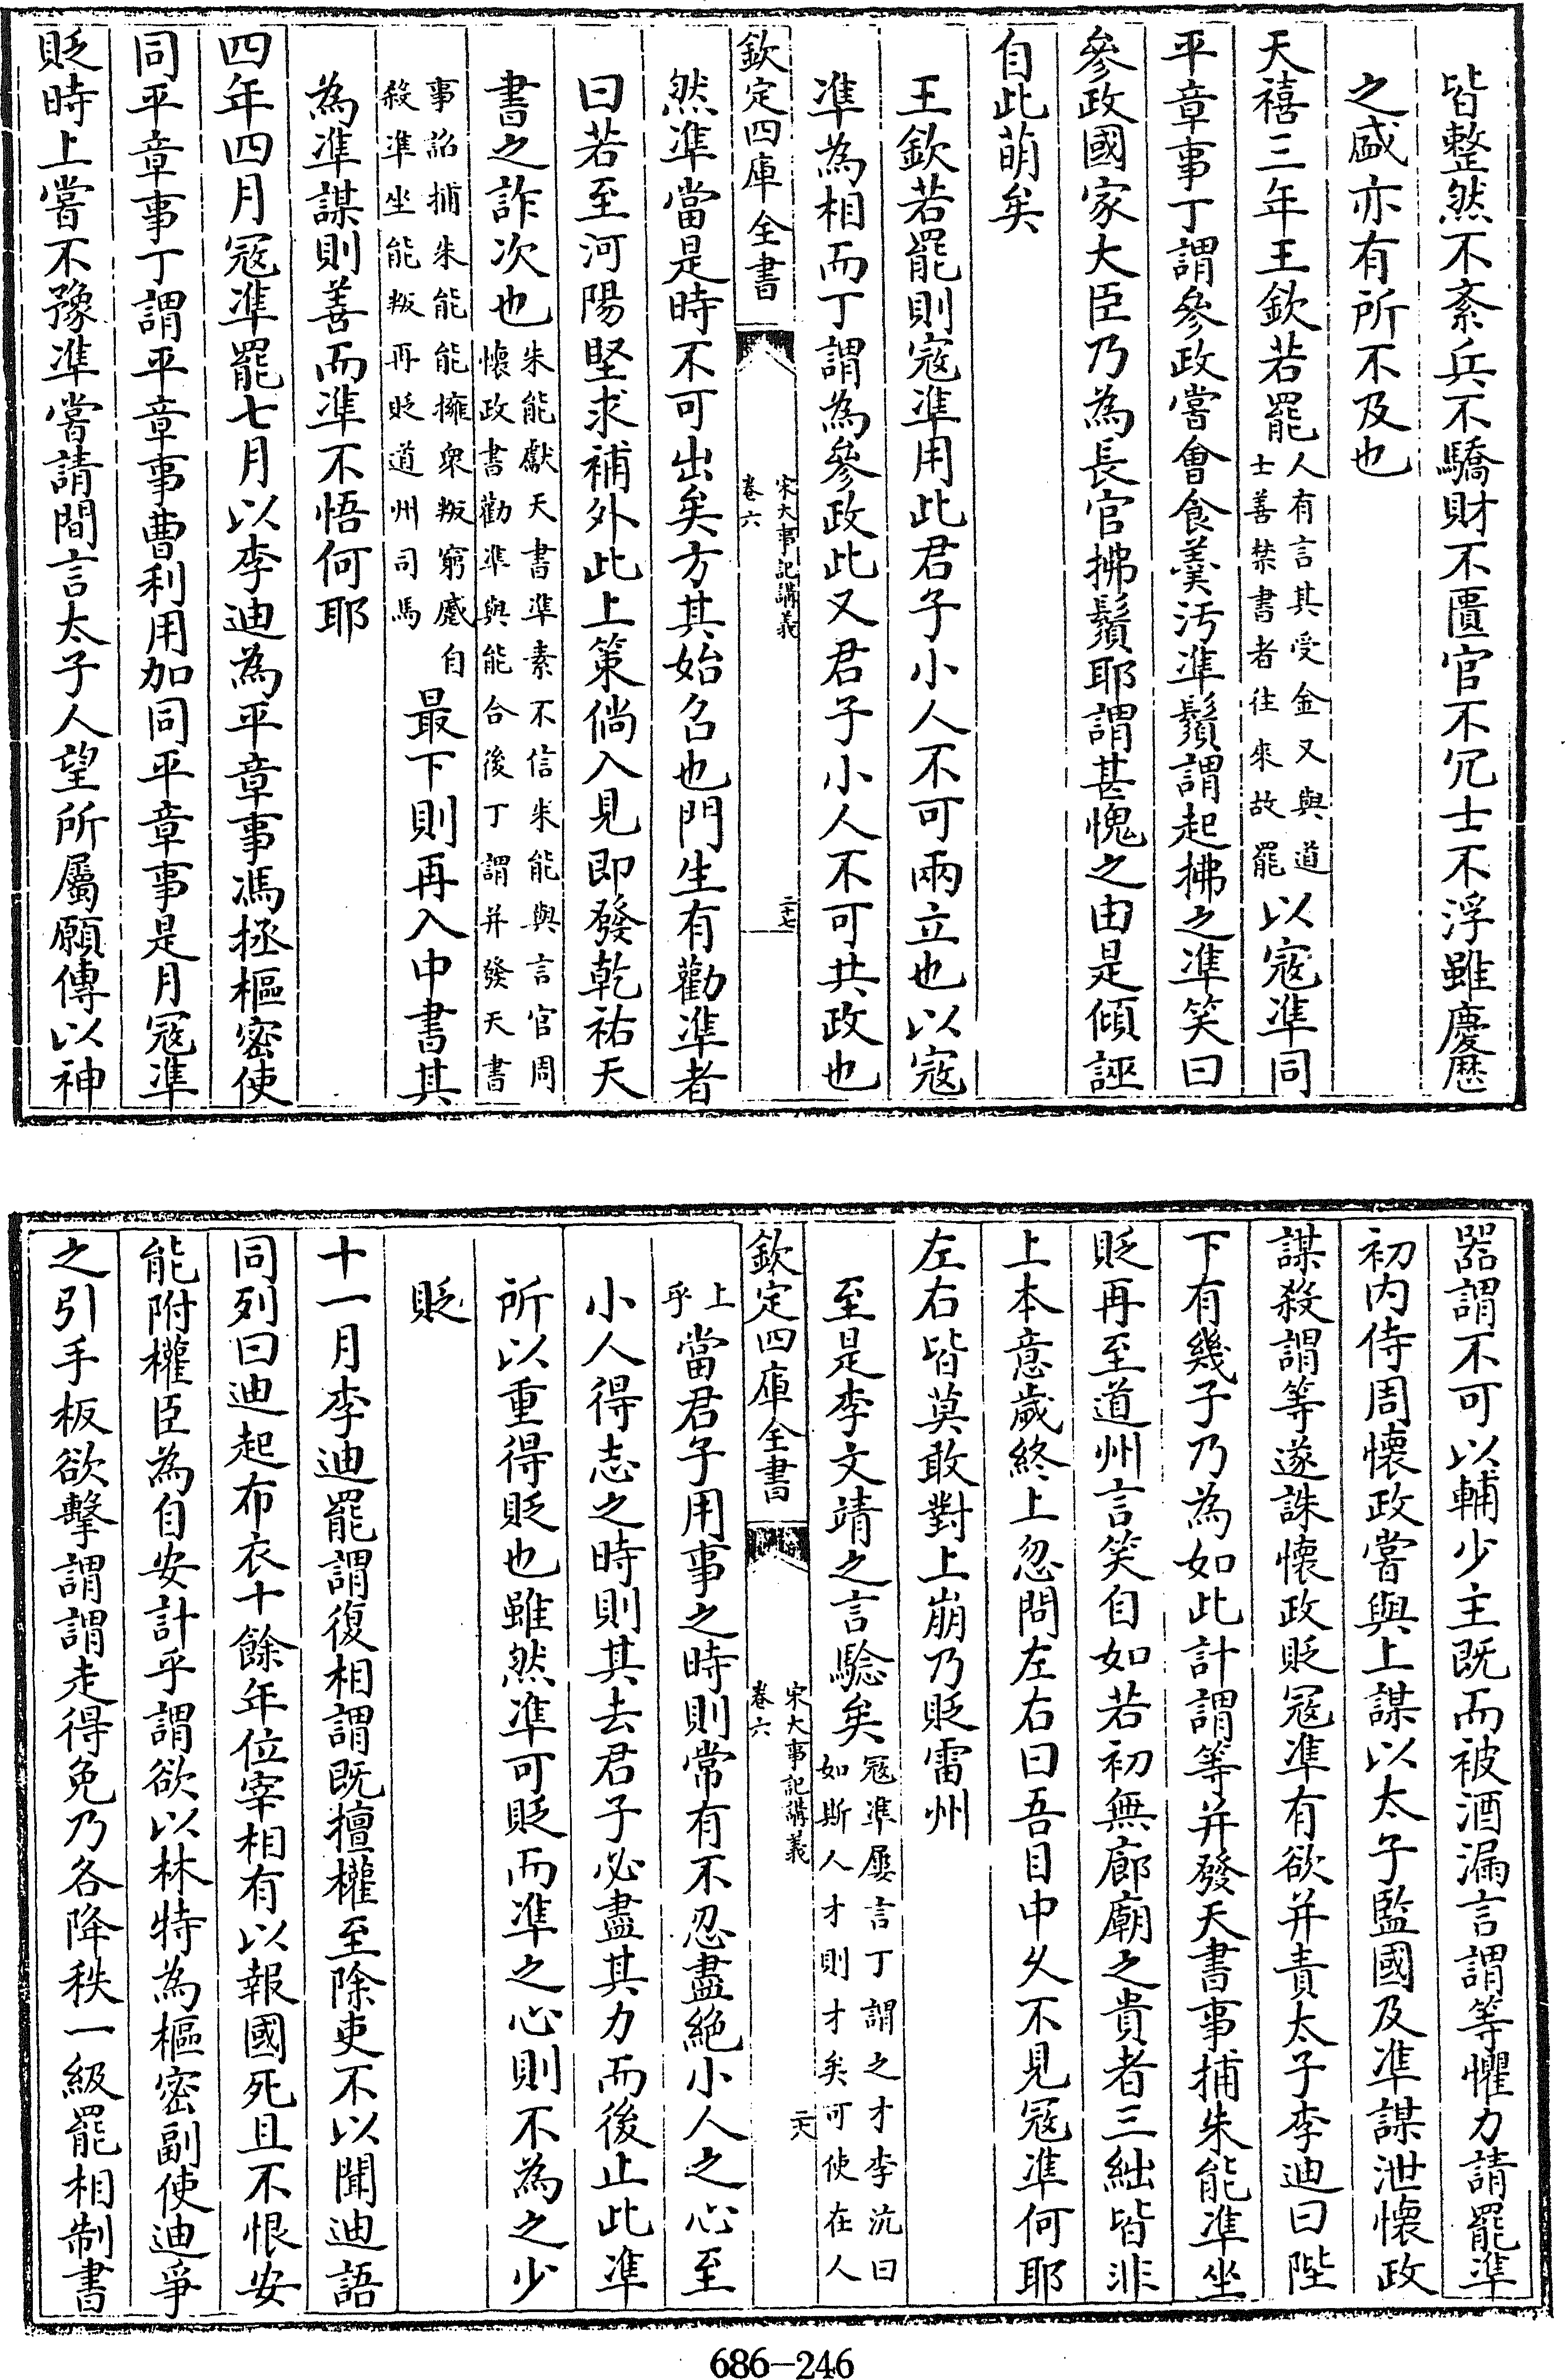 皆整然不紊兵不驕財不匱官不冗士不浮雖慶厯
之盛亦有所不及也
天禧三年王欽若罷人有言其受金又與道
士善禁書者往來故罷以寇準同
平章事丁謂參政嘗會食羹汚準鬚謂起拂之準笑曰
參政國家大臣乃為長官拂鬚耶謂甚愧之由是傾誣
自此萌矣
王欽若罷則寇準用此君子小人不可兩立也以寇
準為相而丁謂為參政此又君子小人不可共政也
欽定四庫全書
宋大事記講義
卷六
二十七
然準當是時不可出矣方其始召也門生有勸準者
曰若至河陽堅求補外此上策倘入見即發乾祐天
書之詐次也朱能獻天書準素不信朱能與言官周
懷政書勸準與能合後丁謂并發天書
事詔捕朱能能擁衆叛窮蹙自
殺準坐能叛再貶道州司馬最下則再入中書其
為準謀則善而準不悟何耶
四年四月寇準罷七月以李迪為平章事馮拯樞密使
同平章事丁謂平章事曹利用加同平章事是月寇準
貶時上嘗不豫準嘗請間言太子人望所屬願傳以神
器謂不可以輔少主既而被酒漏言謂等懼力請罷準
初内侍周懷政嘗與上謀以太子監國及準謀泄懷政
謀殺謂等遂誅懷政貶寇準有欲并責太子李迪曰陛
下有幾子乃為如此計謂等并發天書事捕朱能準坐
貶再至道州言笑自如若初無廊廟之貴者三絀皆非
上本意歲終上忽問左右曰吾目中乆不見寇準何耶
左右皆莫敢對上崩乃貶雷州
至是李文靖之言驗矣寇準屢言丁謂之才李沆曰
如斯人才則才矣可使在人
欽定四庫全書
宋大事記講義
卷六
二十八
上
乎當君子用事之時則常有不忍盡絶小人之心至
小人得志之時則其去君子必盡其力而後止此準
所以重得貶也雖然準可貶而準之心則不為之少
貶
十一月李迪罷謂復相謂既擅權至除吏不以聞迪語
同列曰迪起布衣十餘年位宰相有以報國死且不恨安
能附權臣為自安計乎謂欲以林特為樞密副使迪爭
之引手板欲擊謂謂走得免乃各降秩一級罷相制書
686-246